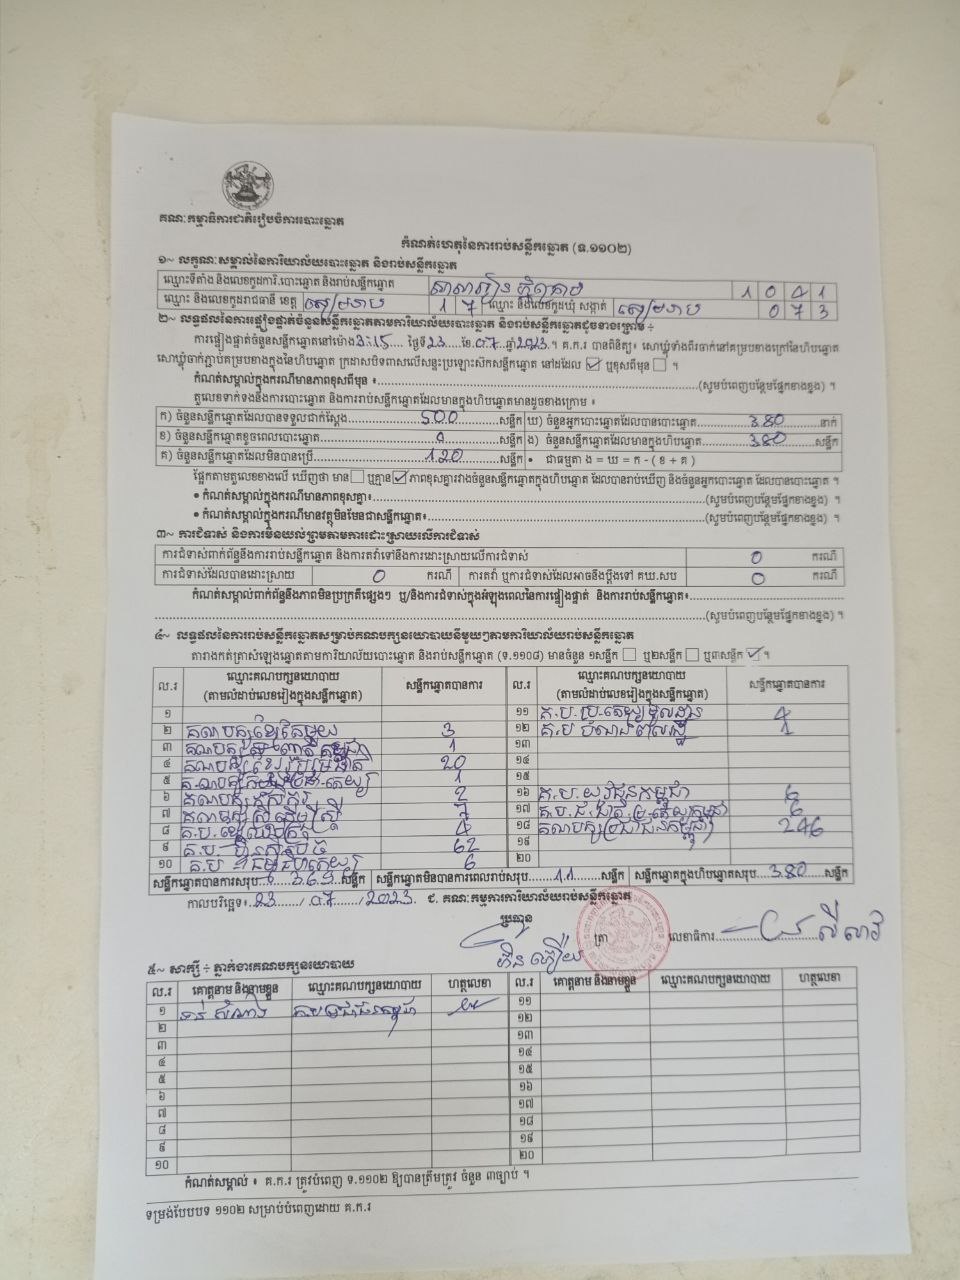 គណៈកម្មាធិការជាតិរៀបចំការបោះឆ្នោត
កំណត់ហេតុនៃការរាប់សន្លឹកឆ្នោត (ទ.១១០២)
១~ លក្ខណៈសម្គាល់នៃការិយាល័យបោះឆ្នោត និងរាប់សន្លឹកឆ្នោត
ឈ្មោះទីតាំង និងលេខកូដការិ.បោះឆ្នោត និងរាប់សន្លឹកឆ្នោត 1 0 4 1
ឈ្មោះ និងលេខកូដរាជធានី ខេត្ត សៀមរាប 1 7 ឈ្មោះ និងលេខកូដឃុំ សង្កាត់ សៀមរាប 0 7 3
២~ លទ្ធផលនៃការផ្ទៀងផ្ទាត់ចំនួនសន្លឹកឆ្នោតតាមការិយាល័យបោះឆ្នោត និងរាប់សន្លឹកឆ្នោតដូចខាងក្រោម ÷
ការផ្ទៀងផ្ទាត់ចំនួនសន្លឹកឆ្នោតនៅម៉ោង 3:15 ថ្ងៃទី 23 ខែ 07 ឆ្នាំ 2023 ។ គ.ក.រ បានពិនិត្យ៖ សោឃ្លុំទាំងពីរចាក់នៅគម្របខាងក្រៅនៃហិបឆ្នោត
សោឃ្លុំចាក់ភ្ជាប់គម្របខាងក្នុងនៃហិបឆ្នោត ក្រដាសបិទពាសលើសន្ទះប្រឡោះស៊កសន្លឹកឆ្នោត នៅដដែល ☑ ឬខុសពីមុន ☐ ។
កំណត់សម្គាល់ក្នុងករណីមានភាពខុសពីមុន ៖ (សូមបំពេញបន្ថែមផ្នែកខាងខ្នង) ។
តួលេខទាក់ទងនឹងការបោះឆ្នោត និងការរាប់សន្លឹកឆ្នោតដែលមានក្នុងហិបឆ្នោតមានដូចខាងក្រោម ៖
ក) ចំនួនសន្លឹកឆ្នោតដែលបានទទួលជាក់ស្តែង 500 សន្លឹក ឃ) ចំនួនអ្នកបោះឆ្នោតដែលបានបោះឆ្នោត 380 នាក់
ខ) ចំនួនសន្លឹកឆ្នោតខូចពេលបោះឆ្នោត 0 សន្លឹក ង) ចំនួនសន្លឹកឆ្នោតដែលមានក្នុងហិបឆ្នោត 380 សន្លឹក
គ) ចំនួនសន្លឹកឆ្នោតដែលមិនបានប្រើ 120 សន្លឹក • ជាធម្មតា ង = ឃ = ក - ( ខ + គ )
ផ្អែកតាមតួលេខខាងលើ ឃើញថា មាន ☐ ឬគ្មាន ☑ ភាពខុសគ្នារវាងចំនួនសន្លឹកឆ្នោតក្នុងហិបឆ្នោត ដែលបានរាប់ឃើញ និងចំនួនអ្នកបោះឆ្នោត ដែលបានបោះឆ្នោត ។
• កំណត់សម្គាល់ក្នុងករណីមានភាពខុសគ្នា៖ (សូមបំពេញបន្ថែមផ្នែកខាងខ្នង) ។
• កំណត់សម្គាល់ក្នុងករណីមានវត្ថុមិនមែនជាសន្លឹកឆ្នោត៖ (សូមបំពេញបន្ថែមផ្នែកខាងខ្នង) ។
៣~ ការជំទាស់ និងការមិនយល់ព្រមតាមការដោះស្រាយលើការជំទាស់
ការជំទាស់ពាក់ព័ន្ធនឹងការរាប់សន្លឹកឆ្នោត និងការតវ៉ាទៅនឹងការដោះស្រាយលើការជំទាស់ 0 ករណី
ការជំទាស់ដែលបានដោះស្រាយ 0 ករណី ការតវ៉ា ឬការជំទាស់ដែលអាចនឹងប្តឹងទៅ គឃ.សប 0 ករណី
កំណត់សម្គាល់ពាក់ព័ន្ធនឹងភាពមិនប្រក្រតីផ្សេងៗ ឬ/និងការជំទាស់ក្នុងអំឡុងពេលនៃការផ្ទៀងផ្ទាត់ និងការរាប់សន្លឹកឆ្នោត៖
(សូមបំពេញបន្ថែមផ្នែកខាងខ្នង) ។
៤~ លទ្ធផលនៃការរាប់សន្លឹកឆ្នោតសម្រាប់គណបក្សនយោបាយនីមួយៗតាមការិយាល័យរាប់សន្លឹកឆ្នោត
តារាងកត់ត្រាសំឡេងឆ្នោតតាមការិយាល័យបោះឆ្នោត និងរាប់សន្លឹកឆ្នោត (ទ.១១០៨) មានចំនួន ១សន្លឹក ☐ ឬ២សន្លឹក ☐ ឬ៣សន្លឹក ☑ ។
ល.រ ឈ្មោះគណបក្សនយោបាយ (តាមលំដាប់លេខរៀងក្នុងសន្លឹកឆ្នោត) សន្លឹកឆ្នោតបានការ ល.រ ឈ្មោះគណបក្សនយោបាយ (តាមលំដាប់លេខរៀងក្នុងសន្លឹកឆ្នោត) សន្លឹកឆ្នោតបានការ
១ ១១ គ.ប.ប្រ.តេយ្យមូលដ្ឋាន 4
២ គណបក្សខ្មែរតែមួយ 3 ១២ គ.ប 1
៣ គណបក្ស 1 ១៣
៤ គណបក្សខ្មែរ 20 ១៤
៥ 1 ១៥
៦ គណបក្សកសិករ 2 ១៦ គ.ប.យុវជនកម្ពុជា 6
៧ គណបក្សស្ត្រីដើម្បីស្ត្រី 7 ១៧ 6
៨ គ.ប. 4 ១៨ គណបក្សប្រជាជនកម្ពុជា 246
៩ គ.ប ហ្វ៊ុនស៊ិនប៉ិច 62 ១៩
១០ គ.ប 6 ២០
សន្លឹកឆ្នោតបានការសរុប 369 សន្លឹក សន្លឹកឆ្នោតមិនបានការពេលរាប់សរុប 11 សន្លឹក សន្លឹកឆ្នោតក្នុងហិបឆ្នោតសរុប 380 សន្លឹក
កាលបរិច្ឆេទ៖ 23 / 07 / 2023 ជ. គណៈកម្មការការិយាល័យរាប់សន្លឹកឆ្នោត
ប្រធាន ត្រា លេខាធិការ
៥~ សាក្សី ÷ ភ្នាក់ងារគណបក្សនយោបាយ
ល.រ គោត្តនាម និងនាមខ្លួន ឈ្មោះគណបក្សនយោបាយ ហត្ថលេខា ល.រ គោត្តនាម និងនាមខ្លួន ឈ្មោះគណបក្សនយោបាយ ហត្ថលេខា
១ គ.ប ប្រជាជនកម្ពុជា ១១
២ ១២
៣ ១៣
៤ ១៤
៥ ១៥
៦ ១៦
៧ ១៧
៨ ១៨
៩ ១៩
១០ ២០
កំណត់សម្គាល់ ៖ គ.ក.រ ត្រូវបំពេញ ទ.១១០២ ឱ្យបានត្រឹមត្រូវ ចំនួន ៣ច្បាប់ ។
ទម្រង់បែបបទ ១១០២ សម្រាប់បំពេញដោយ គ.ក.រ